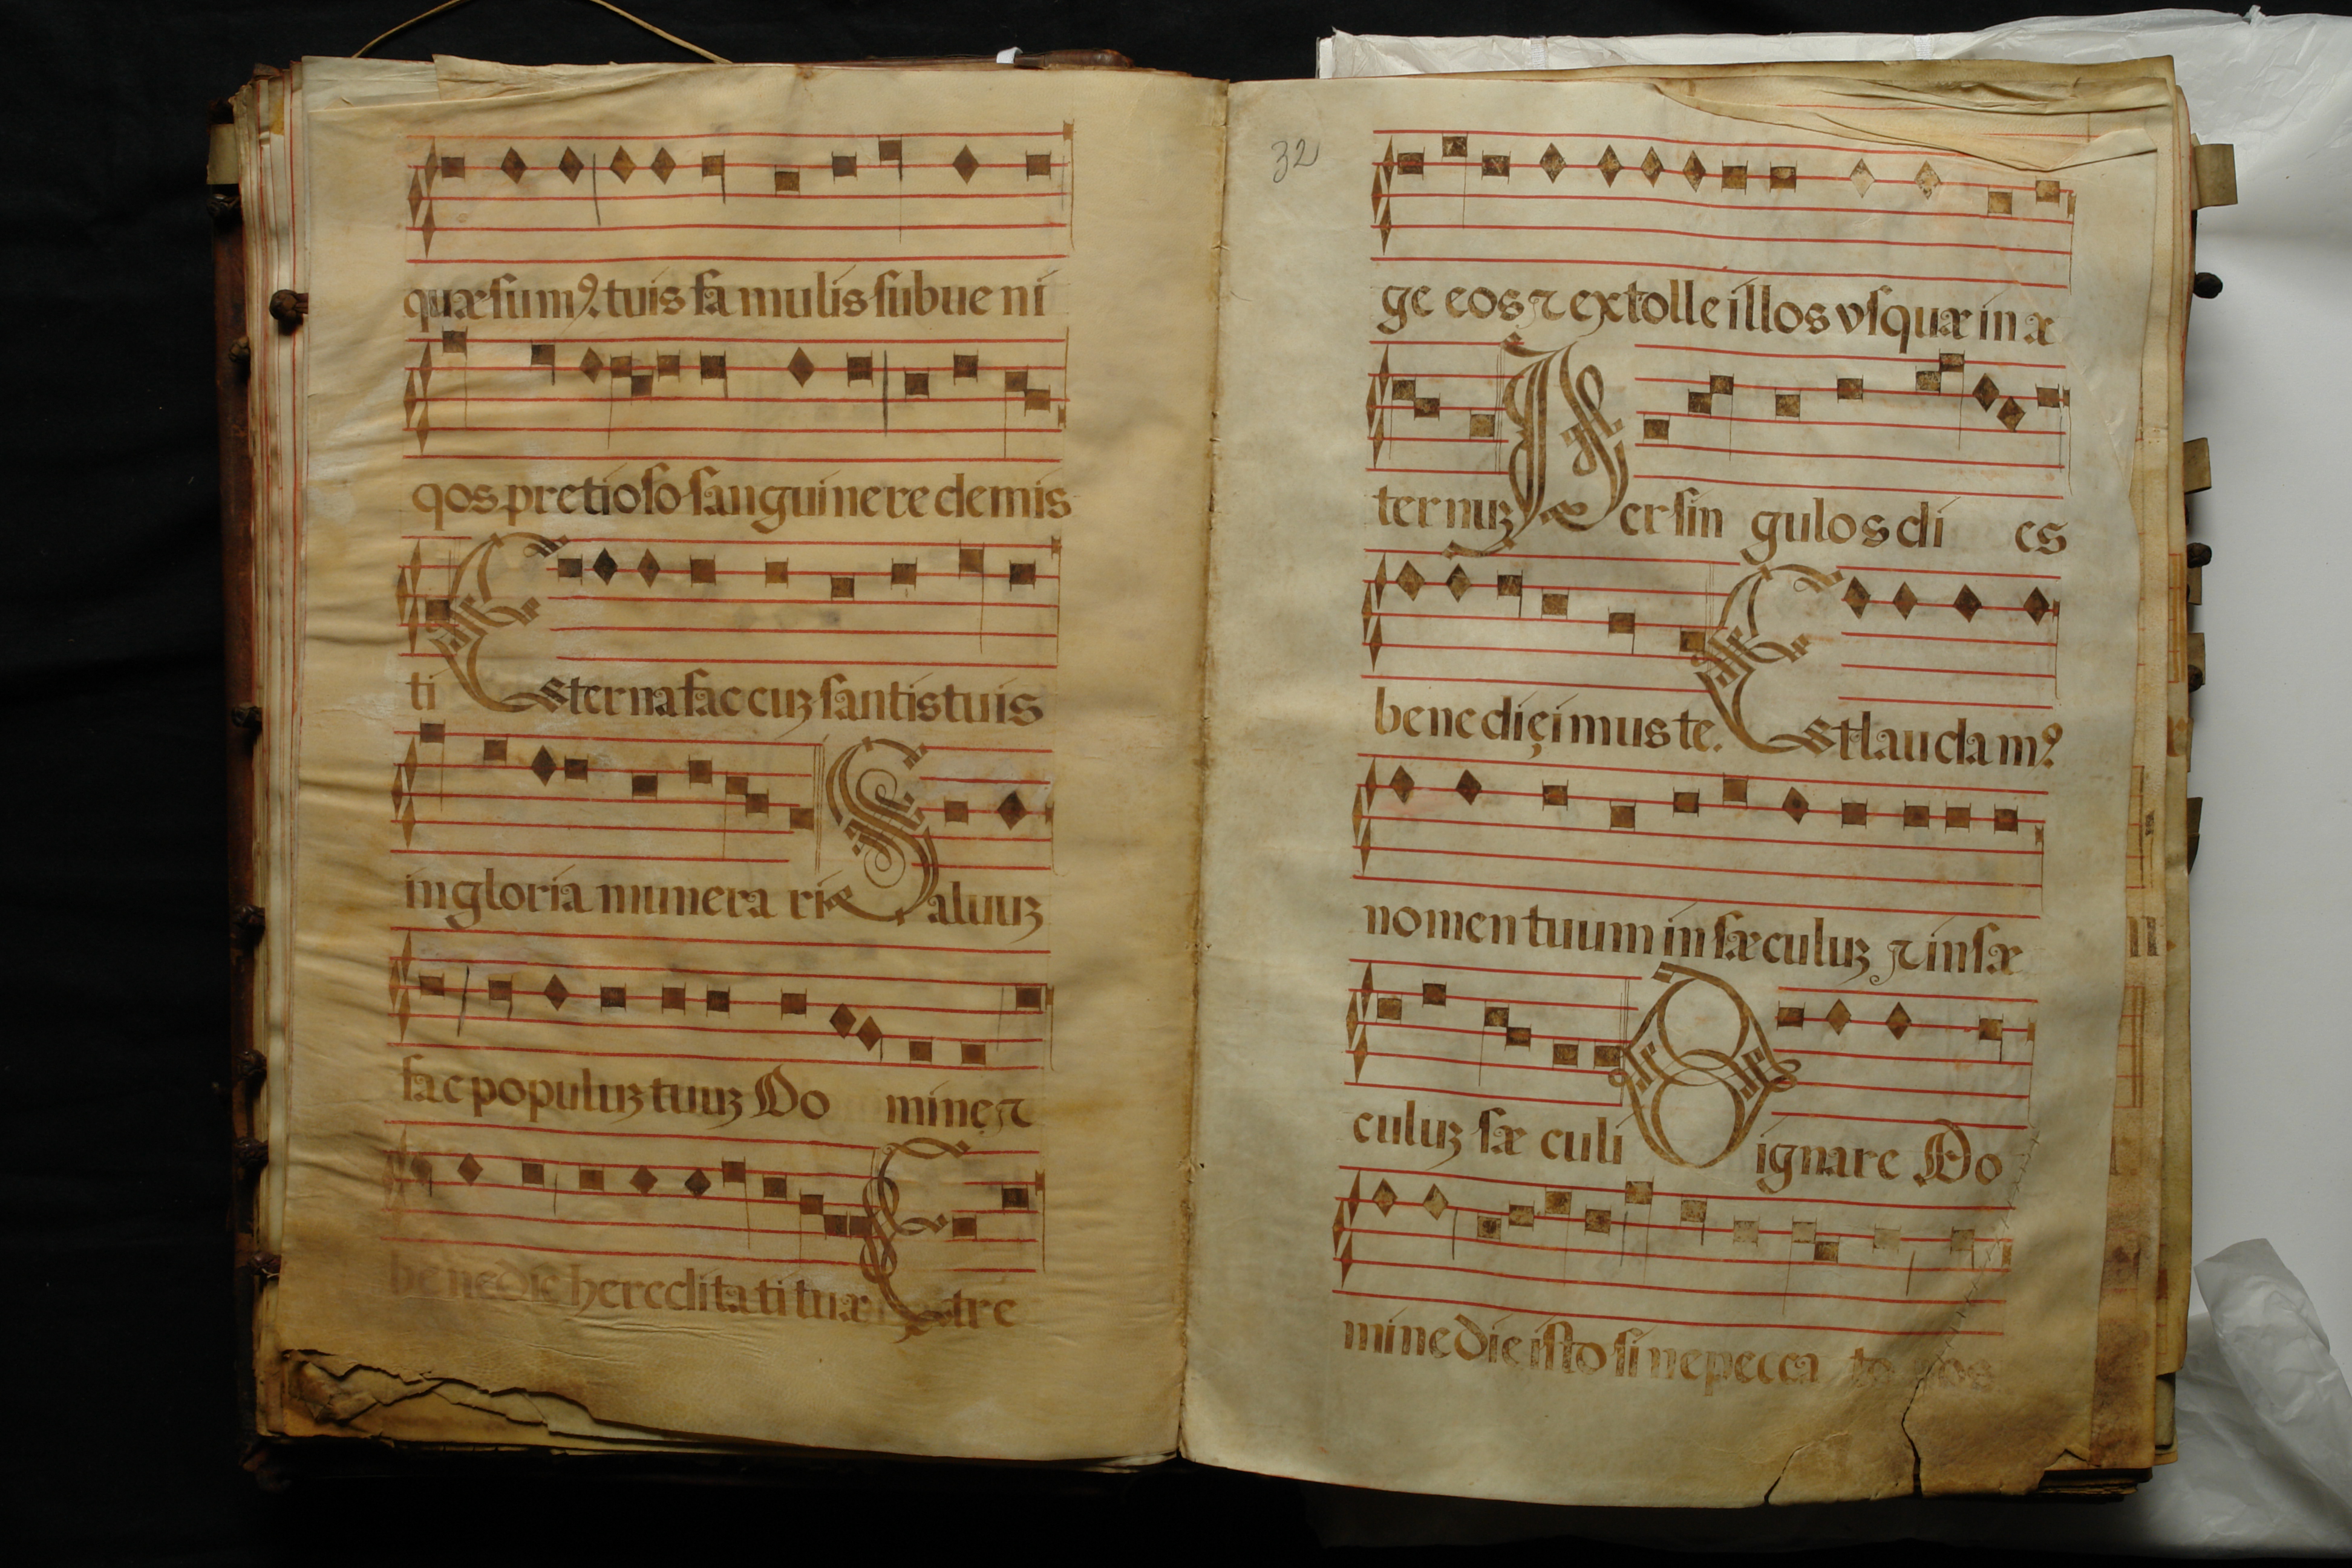 quæsumꝰ. tuis famulis subueni
qos pretioso sanguine redemis
ti Eterna fac cuꝫ santis tuis
in gloria munera ri Saluuꝫ
fac populuꝫ tuuꝫ Domine, ⁊
benedic hereditati tuæ Et re
32
ge eos ⁊ extolle illos vsquæ in æ
ternuꝫ Per singulos dies
benediçimus te. Et laudamꝰ
nomen tuum in sæculuꝫ ⁊ in sæ
culuꝫ sæculi Dignare Do
mine die isto sine pecca to nos